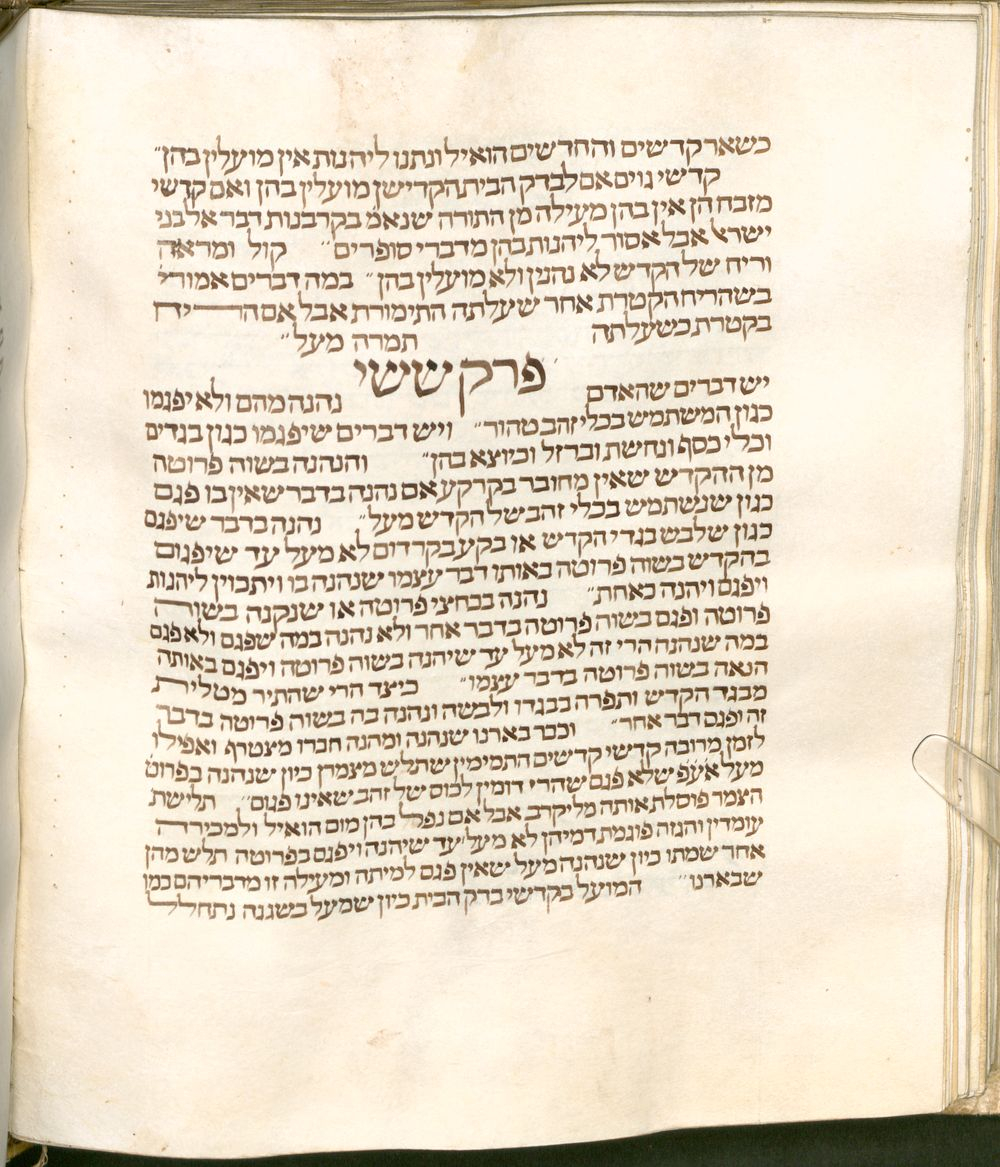 כשאר קדשים והחדשים הואיל ונתנו ליהנות אין מועלין בהן״
קדשי גוים אם לבדק הבית הקדישן מועלין בהן ואם קדשי
מזבח הן אין בהן מעילה מן התורה שנאמ׳ בקרבנות דבר אל בני
ישראל אבל אסור ליהנות בהן מדברי סופרים״ קול ומראה
וריח של הקדש לא נהנין ולא מועלין בהן״ במה דברים אמורי׳
בשהריח הקטרת אחר שעלתה התימורת אבל אם הריח
בקטרת כשעלתה תמרה מעל״
פרק ששי
יש דברים שהאדם נהנה מהם ולא יפגמו
כגון המשתמש בכלי זהב טהור״ ויש דברים שיפגמו כגון בגדים
וכלי כסף ונחשת וברזל וכיוצא בהן״ והנהנה בשוה פרוטה
מן ההקדש שאין מחובר בקרקע אם נהנה בדבר שאין בו פגם
כגון שנשתמש בכלי זהב של הקדש מעל״ נהנה בדבר שיפגם
כגון שלבש בגדי הקדש או בקע בקרדום לא מעל עד שיפגום
בהקדש בשוה פרוטה באותו דבר עצמו שנהנה בו ויתכוין ליהנות
ויפגם ויהנה כאחת״ נהנה בכחצי פרוטה או שנקנה בשוה
פרוטה ופגם בשוה פרוטה בדבר אחר ולא נהנה במה שפגם ולא פגם
במה שנהנה הרי זה לא מעל עד שיהנה בשוה פרוטה ויפגם באותה
הנאה בשוה פרוטה בדבר עצמו״ כיצד הרי שהתיר מטלית
מבגד הקדש ותפרה בבגדו ולבשה ונהנה בה בשוה פרוטה בדבר
זה ופגם דבר אחר״ וכבר בארנו שנהנה ומהנה חברו מצטרף ואפילו
לזמן מרובה קדשי קדשים התמימין שתלש מצמרן כיון שנהנה בפרוט׳
מעל אע״פ שלא פגם שהרי דומין לכוס של זהב שאינו פגום״ תלישת
הצמר פוסלת אותה מליקרב אבל אם נפל בהן מום הואיל ולמכירה
עומדין והגזה פוגמת דמיהן לא מעל עד שיהנה ויפגם בפרוטה תלש מהן
אחר שמתו כיון שנהנה מעל שאין פגם למיתה ומעילה זו מדבריהם כמו
שבארנו״ המועל בקדשי בדק הבית כיון שמעל בשגגה נתחלל